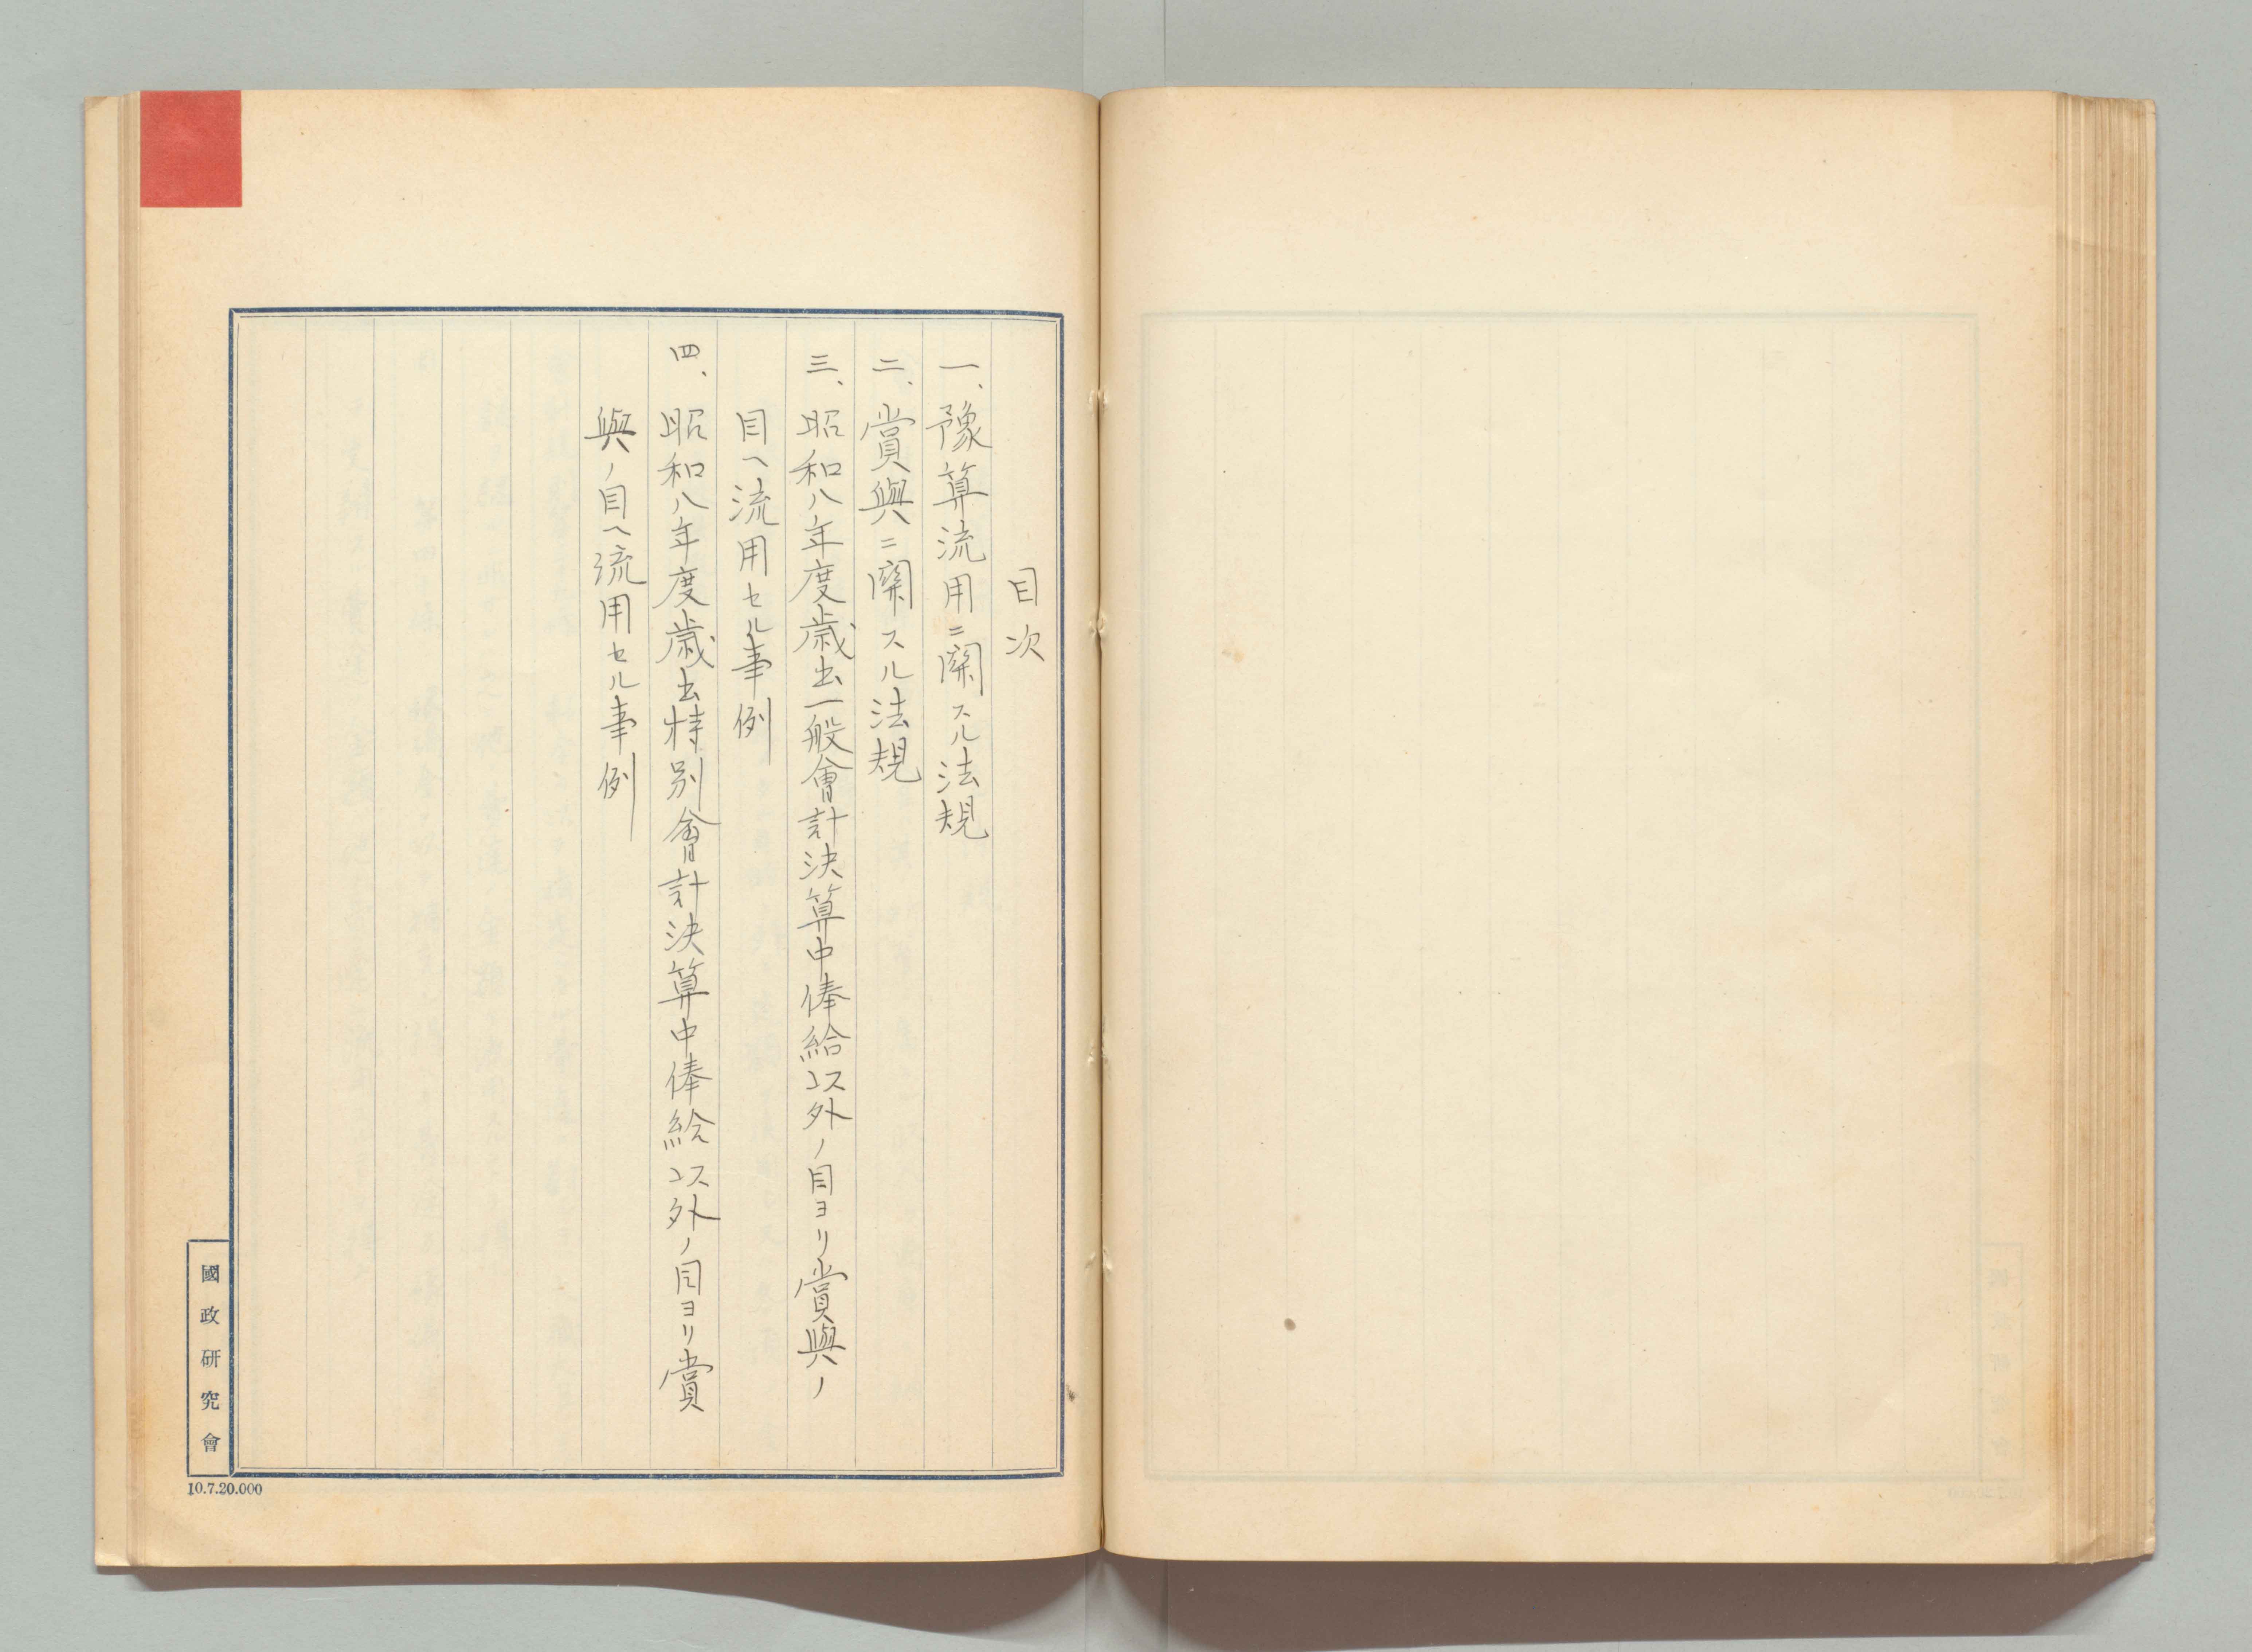 目次
一、豫算流用ニ關スル法規
二、賞與ニ關スル法規
三、昭和八年度歳出一般會計決算中俸給以外ノ目ヨリ賞與ノ
目ヘ流用セル事例
四、昭和八年度歳出特別會計決算中俸給以外ノ目ヨリ賞
與ノ目ヘ流用セル事例
國政研究會
10.7.20.000